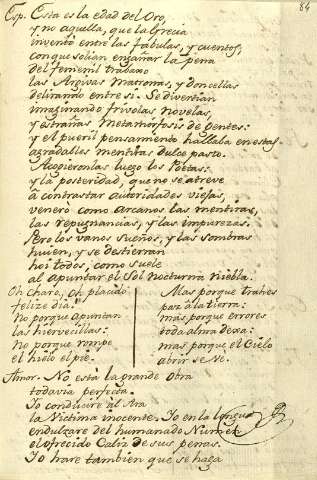 84
Esp. Esta es la edad del Oro,
y no aquella, que la Grecia
inventó entre las fabulas, y cuentos,
con que solian engañar la pena
del femenil trabajo
las Argivas matronas, y doncellas
delirando entre si. Se divertian
imaginando frivolas novelas,
y estrañas metamorfosis de gentes:
y el pueril pensamiento hallaba en estas
agradables mentiras dulce pasto.
Acogieronlas luego los Poetas:
y la posteridad, que no se atreve
a contrastar autoridades viejas,
veneró como arcanos las mentiras,
las repugnancias, y las impurezas.
Pero los vanos sueños, y las sombras
huien, y se destierran
hoi todos, como suele
al apuntar el Sol nocturna niebla.
Oh charo, oh placido
felize dia!
no porque apuntan
las hiervecillas:
no porque rompe
el hielo el pie.
Mas porque trahes
paz a la tierra:
mas porque errores
toda alma dexa:
mas porque el Cielo
abrir se ve.
Amor. No está la grande obra
todavia perfecta.
Yo conducire al Ara
la Victima inocente. Yo en la lengua
endulzare del humanado Numen
el ofrecido Caliz de sus penas.
Yo hare tambien que se haga